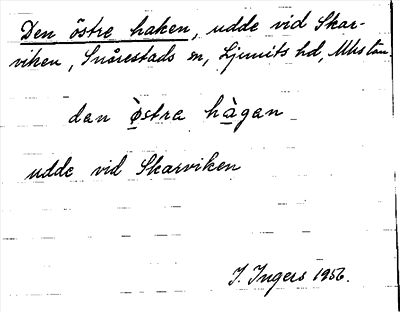 Den östre haken, udde vid Skar-
viken, Snårestads sn, Ljunits hd, Mhs län
dan òstra hàgan
udde vid Skarviken
I. Ingers 1956.